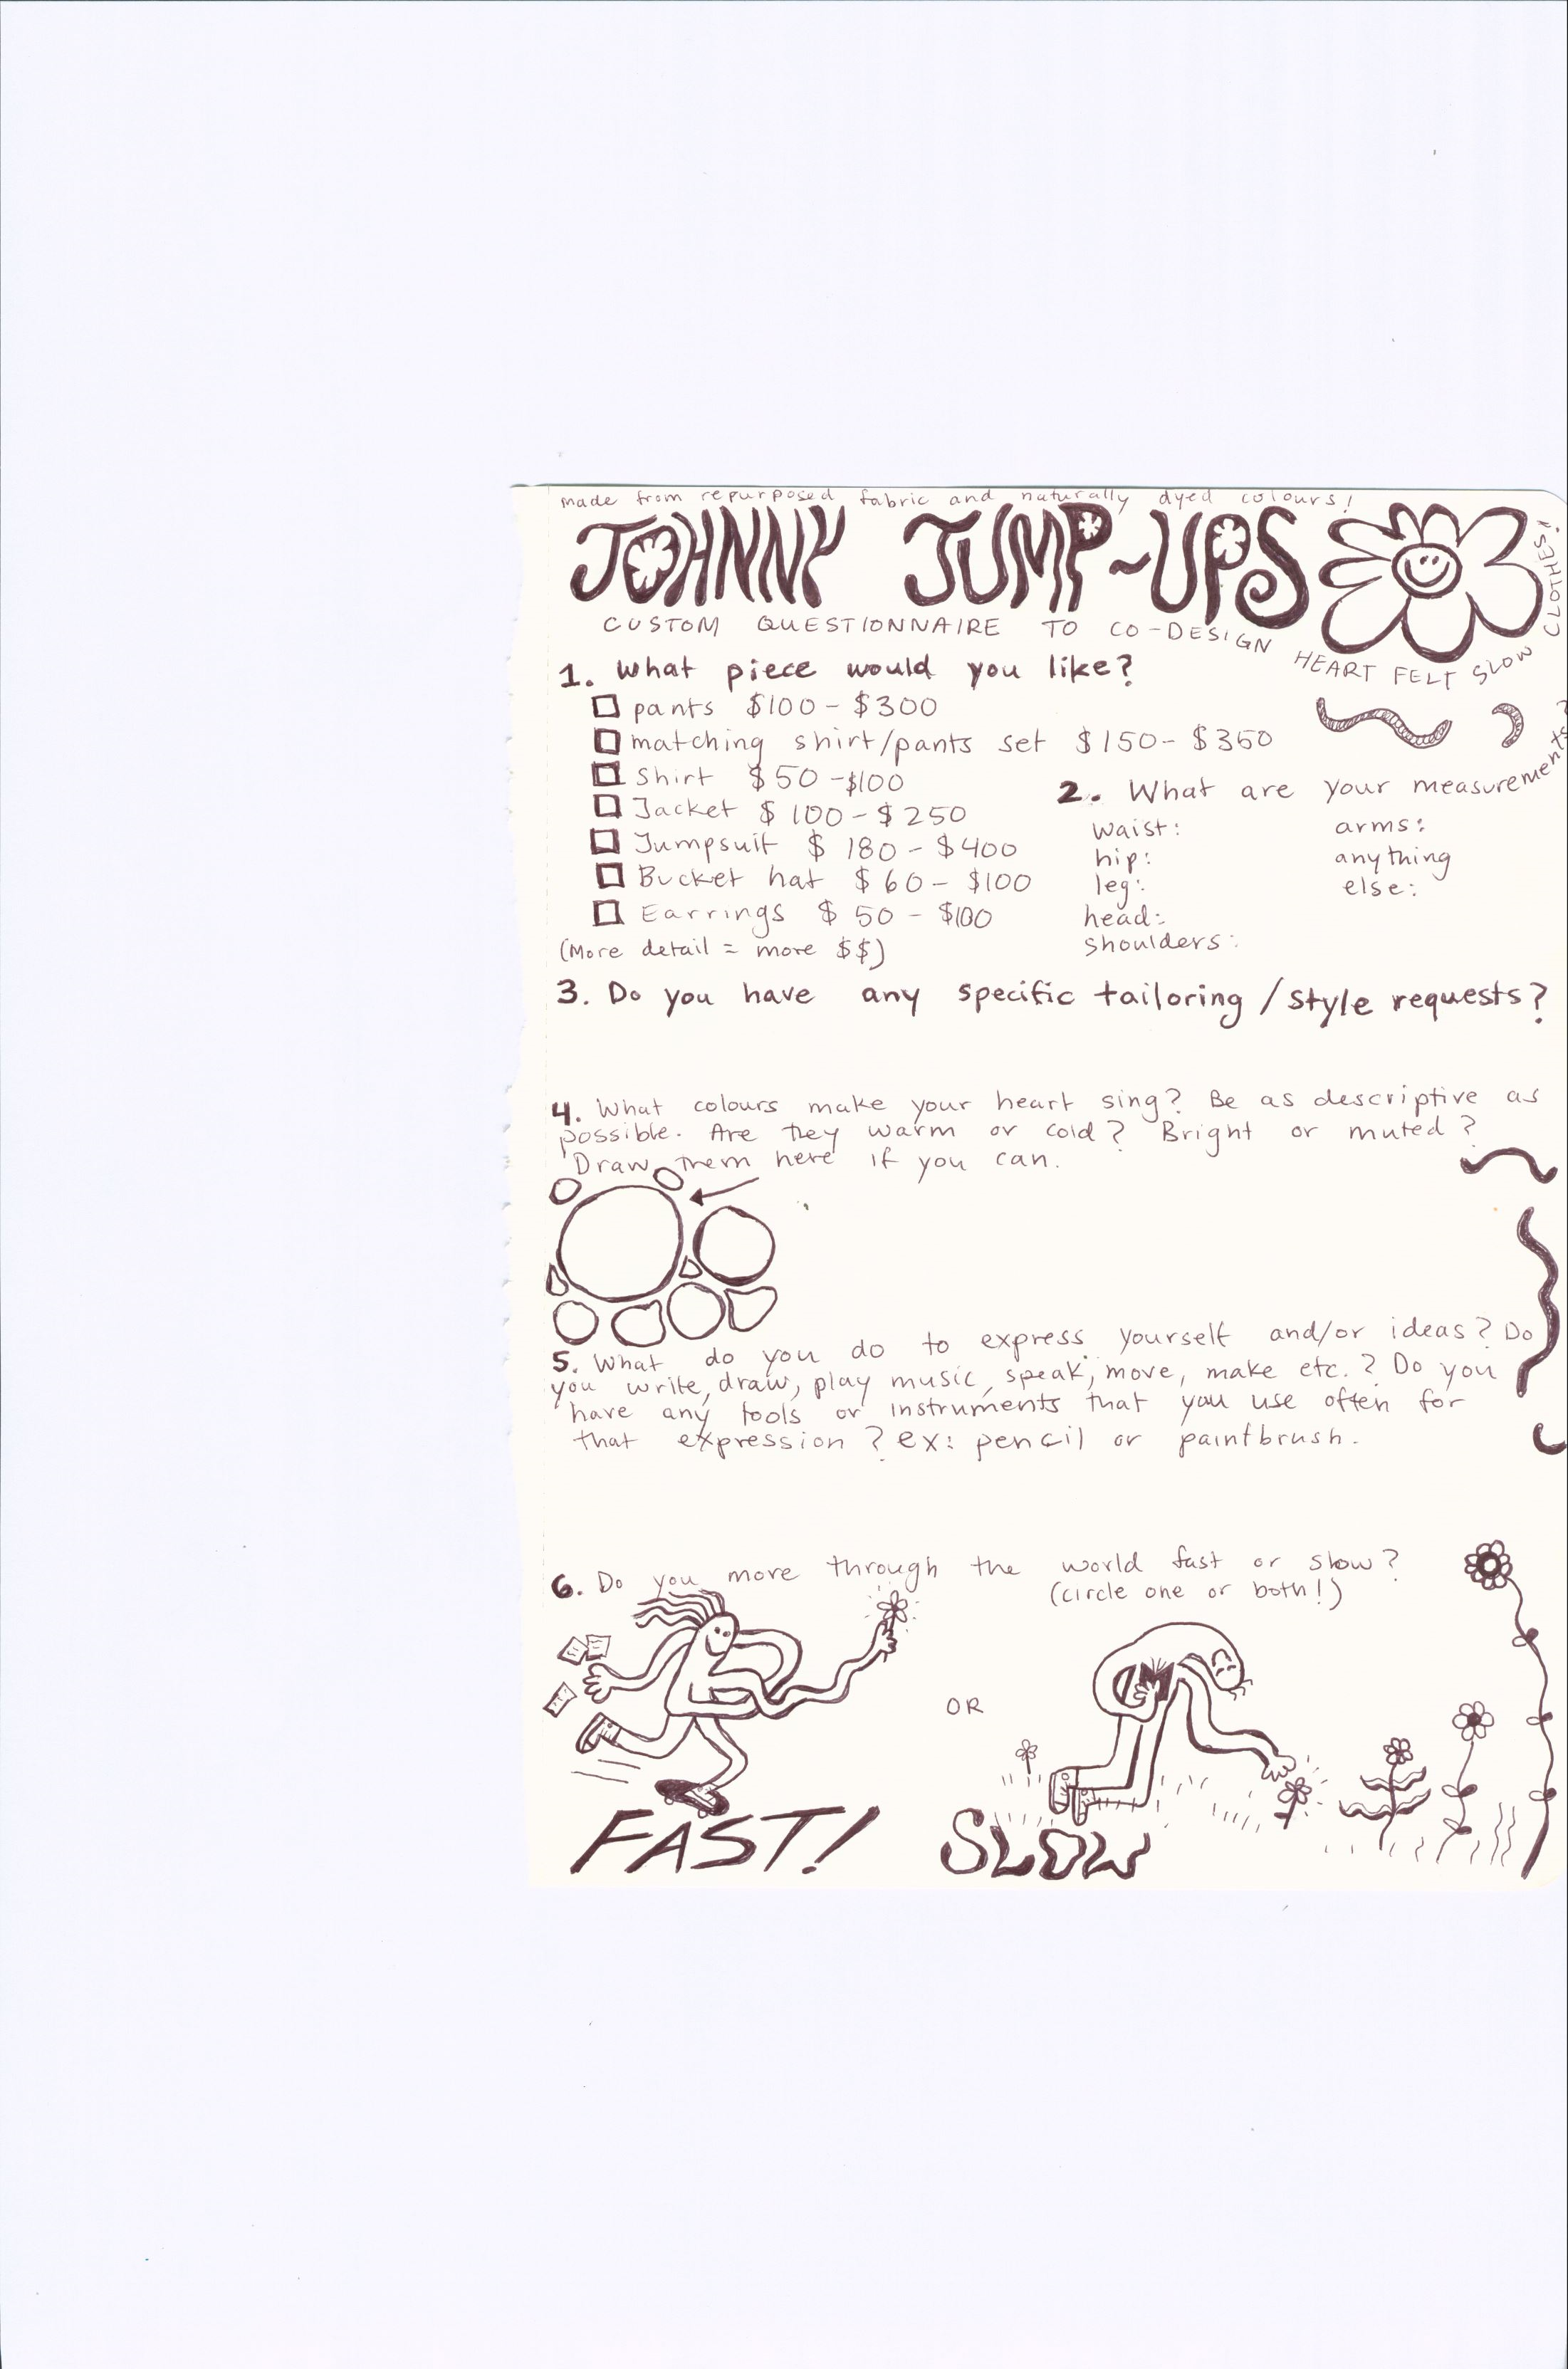 made from repurposed fabric and naturally dyed colours!
JOHNNY JUMP~UPS
CUSTOM QUESTIONNAIRE TO CO-DESIGN HEART FELT SLOW CLOTHES!
1. What piece would you like?
pants $100 - $300
matching shirt/pants set $150 - $350
Shirt $50 - $100
Jacket $100 - $250
Jumpsuit $180 - $400
Bucket hat $60 - $100
Earrings $50 - $100
(More detail = more $$)
2. What are your measurements?
waist:
hip:
leg:
head:
shoulders:
arms:
anything
else:
3. Do you have any specific tailoring/style requests?
4. What colours make your heart sing? Be as descriptive as
possible. Are they warm or cold? Bright or muted?
Draw them here if you can.
5. What do you do to express yourself and/or ideas? Do
you write, draw, play music, speak, move, make etc.? Do you
have any tools or instruments that you use often for
that expression? ex: pencil or paintbrush.
6. Do you more through the world fast or slow?
(circle one or both!)
OR
FAST!
SLOW